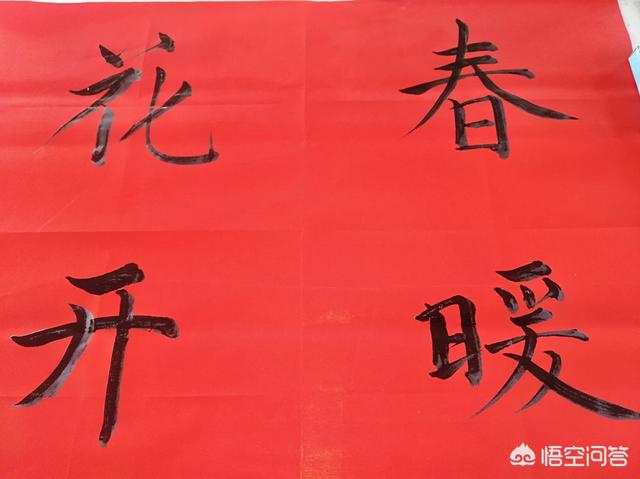 春暖
花开
悟空问答